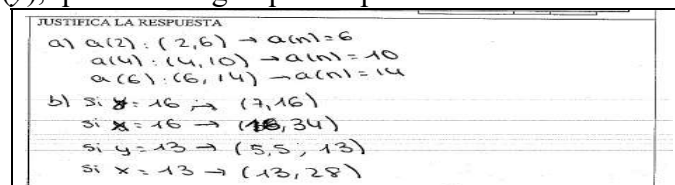 JUSTIFICA LA RESPUESTA
a) a(2): (2,6) → a(n)=6
a(4): (4,10) → a(n)=10
a(6): (6,14) → a(n)=14
b) si y=16 → (7,16)
si x=16 → (16,34)
si y=13 → (5,5; 13)
si x=13 → (13,28)